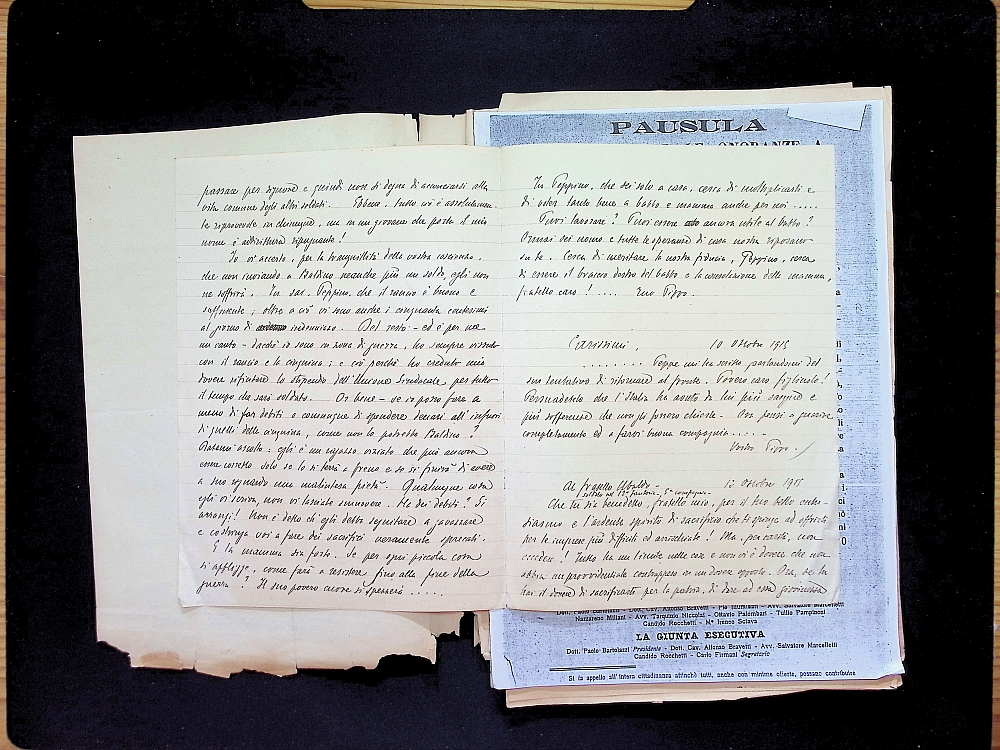 passare per signore e quindi non si degna di acconciarsi alla
vita comune degli altri soldati. Ebbene, tutto ciò è assolutamen-
te riprovevole in chiunque, ma in un giovane che porta il mio
nome è addirittura ripugnante!
Io vi accerto, per la tranquillità della vostra coscienza,
che non inviando a Baldino neanche più un soldo, egli non
ne soffrirà. Tu sai, Peppino, che il rancio è buono e
sufficiente; oltre a ciò vi sono anche i cinquanta centesimi
al giorno di indennizzo. Del resto: - ed è per me
un vanto - dacchè io sono in zona di guerra, ho sempre vissuto
con il rancio e la cinquina; e ciò perchè ho creduto mio
dovere rifiutare lo stipendio dell'Unione Sindacale per tutto
il tempo che sarò soldato. Or bene - se io posso fare a
meno di far debiti o comunque di spendere denari all'infuori
di quelli della cinquina, come non lo potrebbe Baldino?
Datemi ascolto: egli è un ragazzo viziato che può ancora
esser corretto solo se lo si terrà a freno e se si finirà di avere
a suo riguardo una malintesa pietà. Qualunque cosa
egli vi scriva, non vi lasciate smuovere. Ha dei debiti? Si
arrangi! Non è detto ch'egli debba seguitare a gavazzare
e costringa voi a fare dei sacrifici veramente sprecati.
E la mamma sia forte. Se per ogni piccola cosa
si affligge, come farà a resistere fino alla fine della
guerra? Il suo povero cuore si spezzerà .....
Tu Peppino, che sei solo a casa, cerca di moltiplicarti e
di voler tanto bene a babbo e mamma anche per noi .....
Puoi lavorare? Puoi essere ancora utile al babbo?
Ormai sei uomo e tutte le speranze di casa nostra riposano
su te. Cerca di meritare la nostra fiducia, Peppino, cerca
di essere il braccio destro del babbo e la consolazione della mamma,
fratello caro! .... Tuo Pippo.
Carissimi, 10 Ottobre 1915
........ Peppe mi ha scritto parlandomi del
suo tentativo di ritornare al fronte. Povero caro figliuolo!
Persuadetelo che l'Italia ha avuto da lui più sangue e
più sofferenze che non gli fossero chieste. Ora pensi a guarire
completamente ed a farvi buona compagnia .....
Vostro Pippo.
Al fratello Ubaldo - 12 Ottobre 1915
soldato nel 12° fanteria, 5ª compagnia.
Che tu sia benedetto, fratello mio, per il tuo bello entu-
siasmo e l'ardente spirito di sacrificio che ti spinge ad offrirti
per le imprese più difficili ed arrischiate! Ma, per carità, non
eccedere! Tutto ha un limite nelle cose e non vi è dovere che non
abbia un provvidenziale contrappeso in un dovere opposto. Ora, se tu
hai il dovere di sacrificarti per la patria, di dare ad essa giovinezza
PAUSULA
ONORANZE A
Dott. Paolo Bartolazzi - Dott. Cav. Alfonso Bravetti - Avv. Salvatore Marcelletti
Nazzareno Miliani - Avv. Tarquinio Niccolai - Ottavio Palombari - Tullio Pampinoni
Candido Rocchetti - Mº Ireneo Sclava
LA GIUNTA ESECUTIVA
Dott. Paolo Bartolazzi Presidente - Dott. Cav. Alfonso Bravetti - Avv. Salvatore Marcelletti
Candido Rocchetti - Carlo Firmani Segretario
Si fa appello all'intera cittadinanza affinchè tutti, anche con minime offerte, possano contribuire